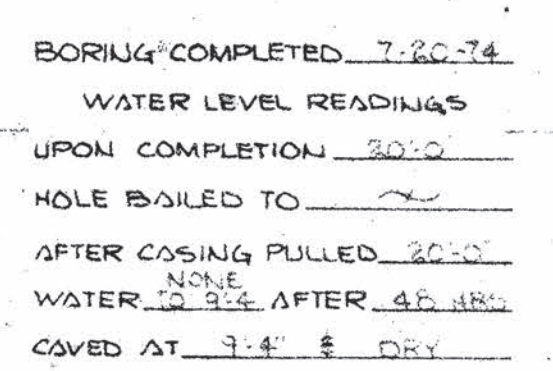 BORING COMPLETED 7-20-74
WATER LEVEL READINGS
UPON COMPLETION 20'-0"
HOLE BAILED TO ~
AFTER CASING PULLED 20'-0"
NONE
WATER TO 9'-4 AFTER 48 HRS
CAVED AT 9'-4" & DRY